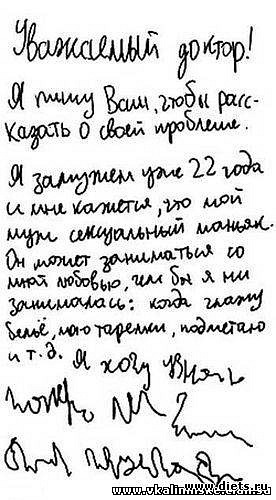 Уважаемый доктор!
Я пишу Вам, чтобы расс-
казать о своей проблеме.
Я замужем уже 22 года
и мне кажется, что мой
муж сексуальный маньяк.
Он может заниматься со
мной любовью, чем бы я ни
занималась: когда глажу
бельё, мою тарелки, подметаю
и т.д. Я хочу узнать
www.vkalininkskre.com.ua
www.diets.ru